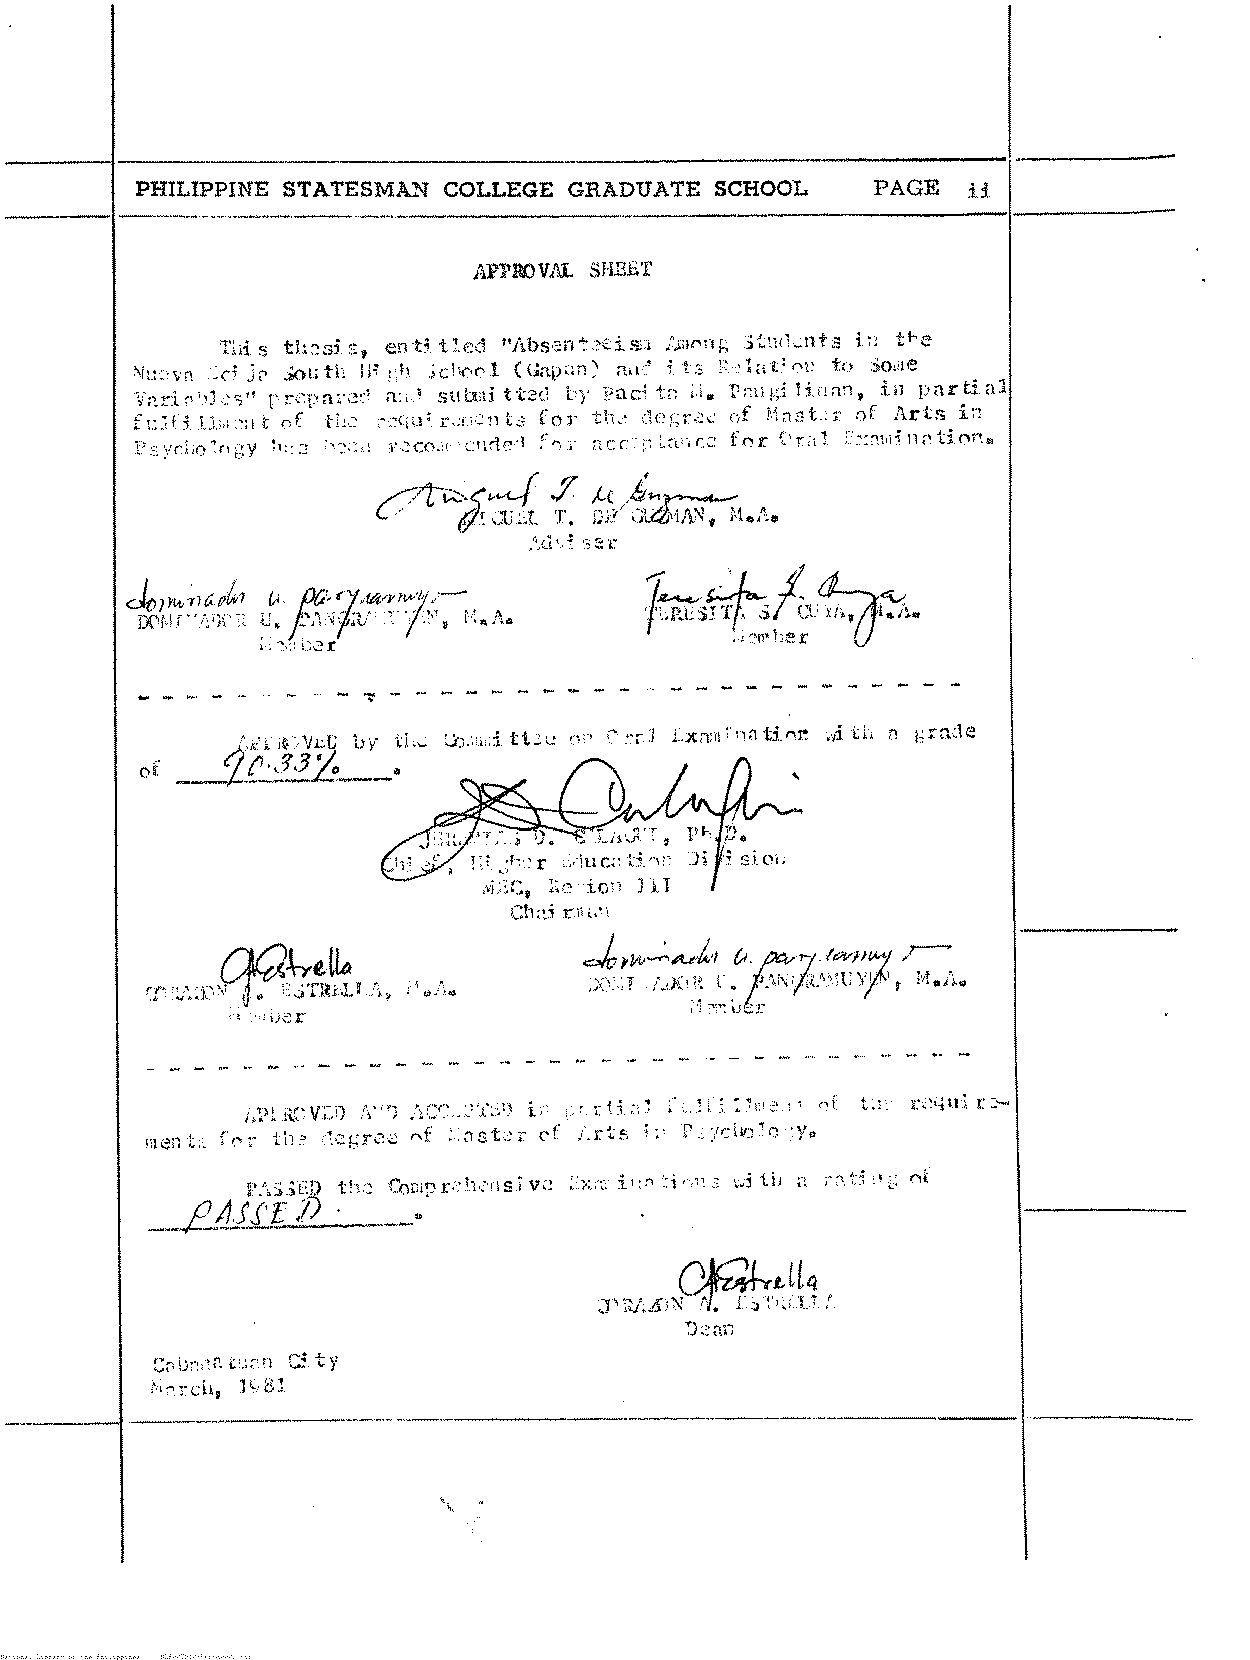 PHILIPPINE STATESMAN COLLEGE GRADUATE SCHOOL PAGE ii
APPROVAL SHEET
This thesis, entitled "Absenteeism Among Students in the
Nueva Ecija South High School (Gapan) and its Relation to Some
Variables" prepared and submitted by Pacita M. Pangilinan, in partial
fulfillment of the requirements for the degree of Master of Arts in
Psychology has been recommended for acceptance for Oral Examination.
Miguel T. de Guzman
MIGUEL T. DE GUZMAN, M.A.
Adviser
DOMINADOR U. PANGRAMUYEN, M.A. TERESITA S. M.A.
Member Member
APPROVED by the Committee on Oral Examination with a grade
of 90.33% .
D. Ph.D.
Chief, Higher Education Division
MEC, Region III
Chairman
CAEstrella
CORAZON A. ESTRELLA, M.A. DOMINADOR U. PANGRAMUYEN, M.A.
Member Member
APPROVED AND ACCEPTED in partial fulfillment of the require-
ments for the degree of Master of Arts in Psychology.
PASSED the Comprehensive Examinations with a rating of
PASSED .
CAEstrella
CORAZON A. ESTRELLA
Dean
Cabanatuan City
March, 1981